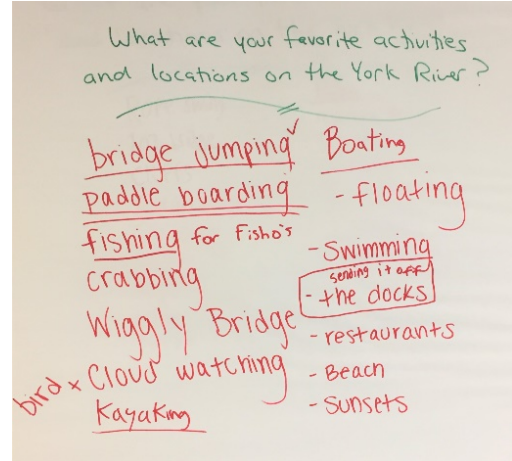 What are your favorite activities
and locations on the York River?
bridge jumping
paddle boarding
fishing for Fisho's
crabbing
Wiggly Bridge
bird x Cloud watching
Kayaking
Boating
- floating
- Swimming
sending it off
- the docks
- restaurants
- Beach
- Sunsets